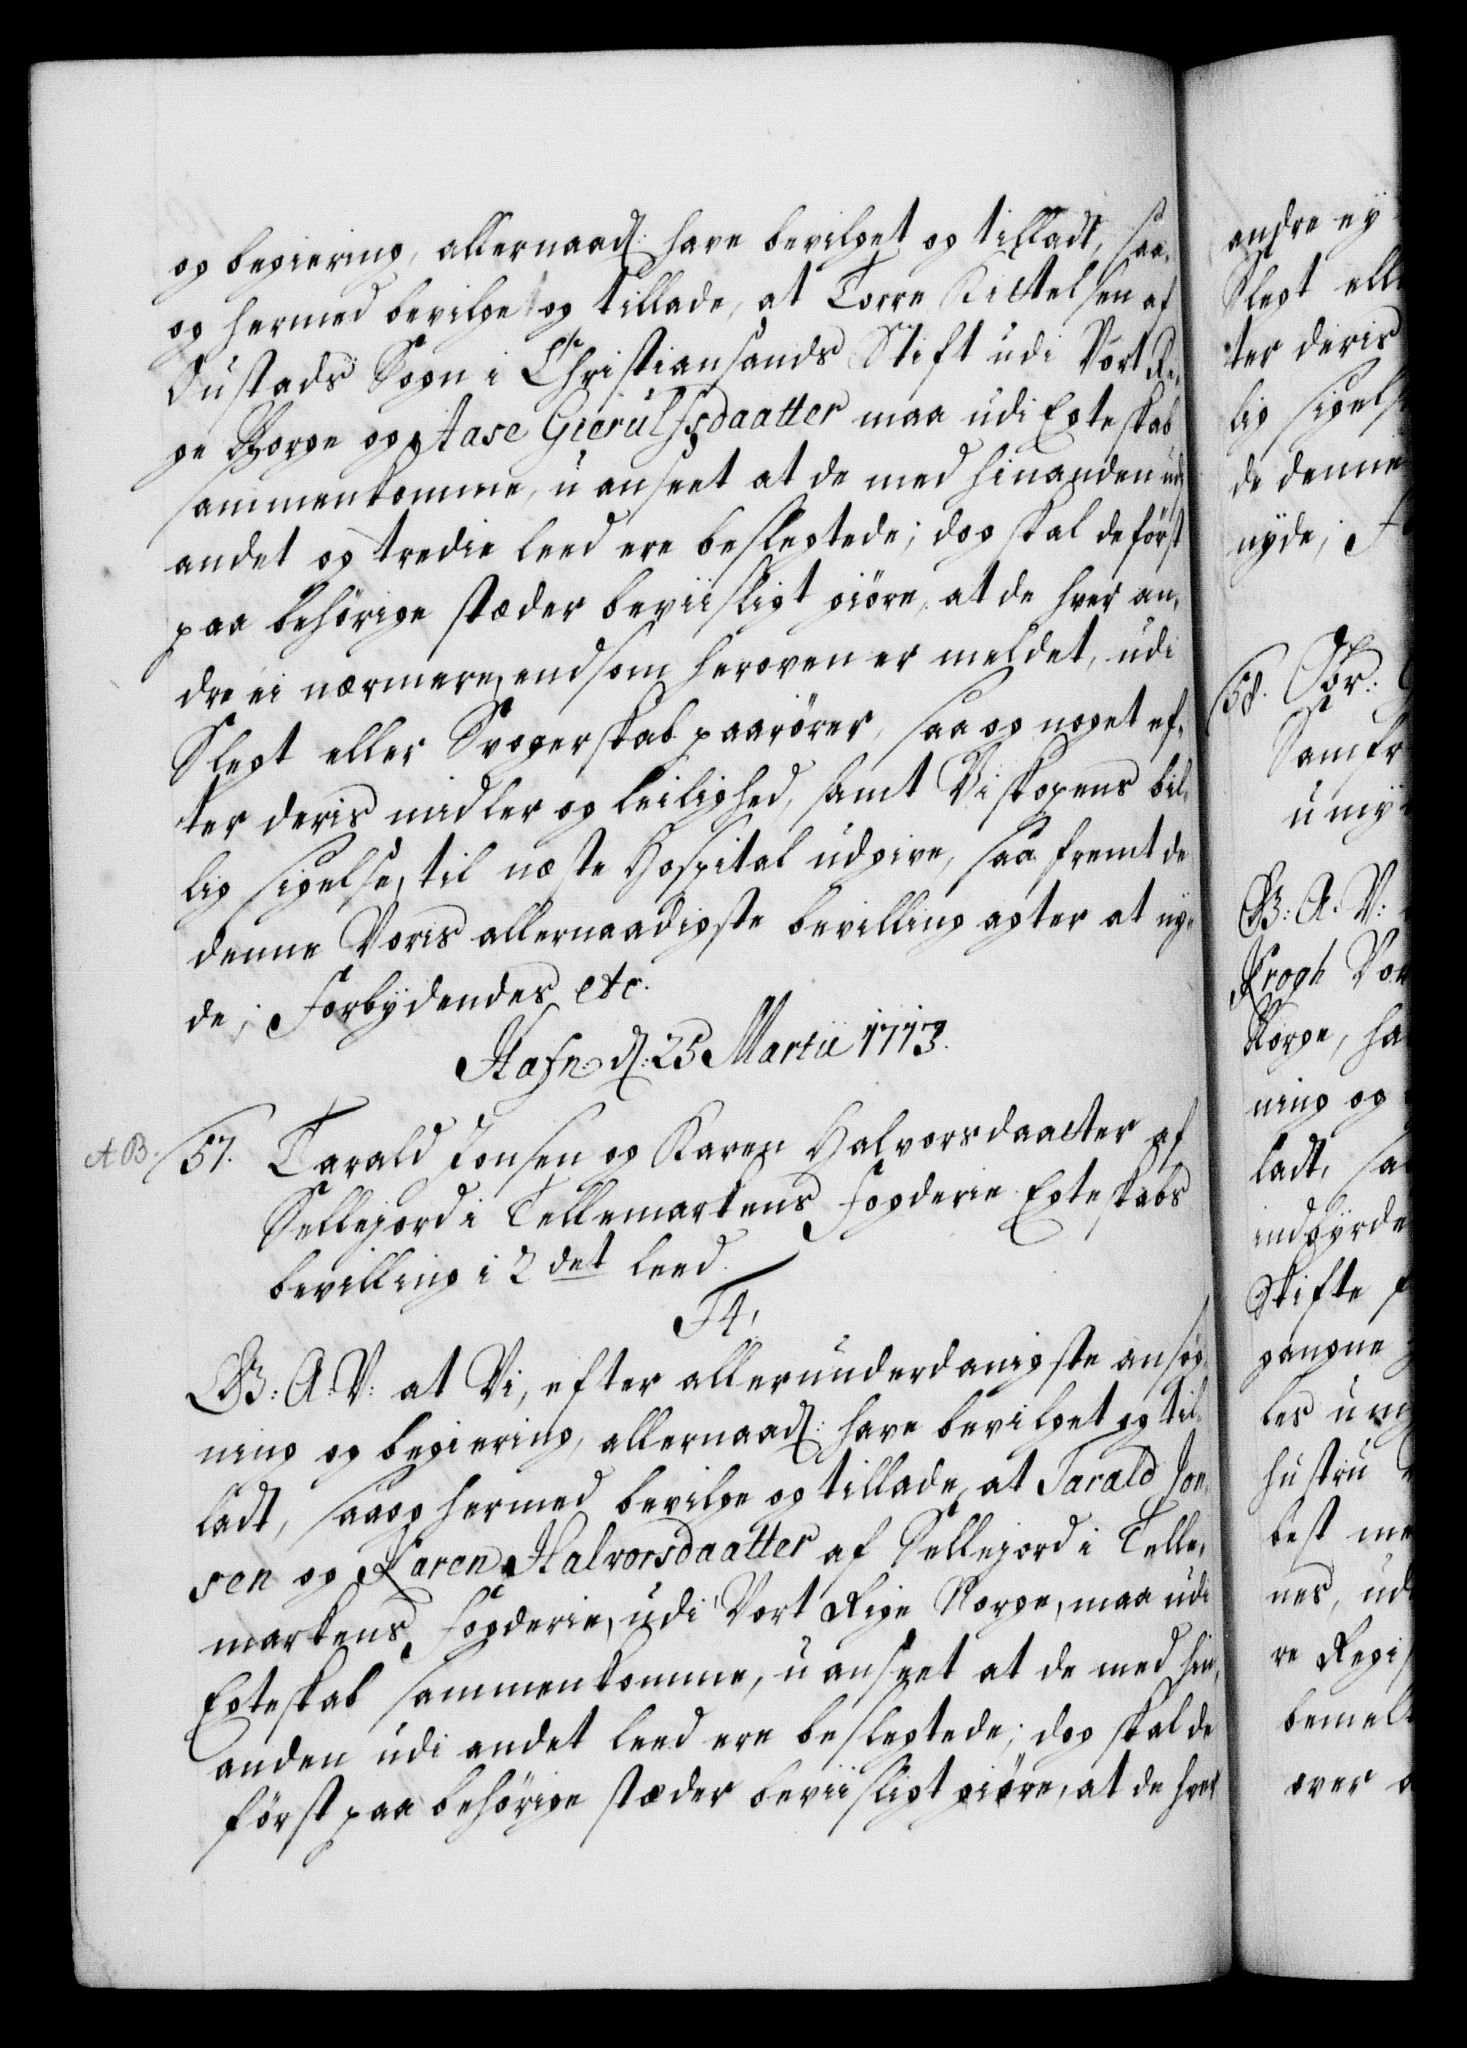 og begiering, allernaad: have bevilget og tilladt, saa-
og hermed bevilge og tillade, at Torre Kittelsen af
Sustads Sogn i Christiansands Stift udi Vort Ri-
ge Norge og Aase Gierulfsdaatter maa udi Egteskab
sammenkomme, uanseet at de med hinanden udj
andet og tredie leed ere beslegtede; dog skal de först
paa behörige stæder beviisligt giöre, at de hver an-
dre ei nærmere, end som heroven er meldet, udi
Slegt eller Svogerskab paarörer, saa og noget ef-
ter deris midler og leilighed, samt Biskopens bil-
lig sigelse, til næste Hospital udgive, saa fremt de
denne Voris allernaadigste bevilling agter at ny-
de; Forbydendes etc.
Hafn: d: 25 Martii 1713.
AB. 57. Tarald Jonsen og Karen Halvorsdaatter af
Sellejord i Tellemarkens Fogderie Egteskabs
bevilling i 2 det leed.
F4,
G: A: V: at Vi, efter allerunderdanigste ansög-
ning og begiering, allernaad: have bevilget og til-
ladt, saa og hermed bevilge og tillade, at Tarald Jon-
sen og Karen Halvorsdaatter af Sellejord i Telle-
markens Fogderie, udi Vort Rige Norge, maa udi
Egteskab sammenkomme, uanseet at de med hin-
anden udi andet leed ere beslegtede; dog skal de
först paa behörige stæder beviisligt giöre, at de hver
andre ey
Slegt ell
ter deris
lig sigels
de denne
nyde; F
58.
Samfr
umy
B: A: V:
Krogh Vor
Norge, ha
ning og
ladt, sa
indgyrde
Stifte f
gangne
les um
hustru
best me
nes, ud
re Regi
bemel
over